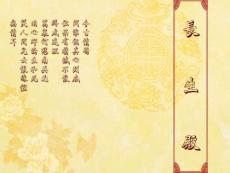 長生殿
今古情場
問誰個真心到底
但果有精誠不散
終成連理
萬里何愁南共北
兩心那論生和死
笑人間兒女悵緣慳
無情耳